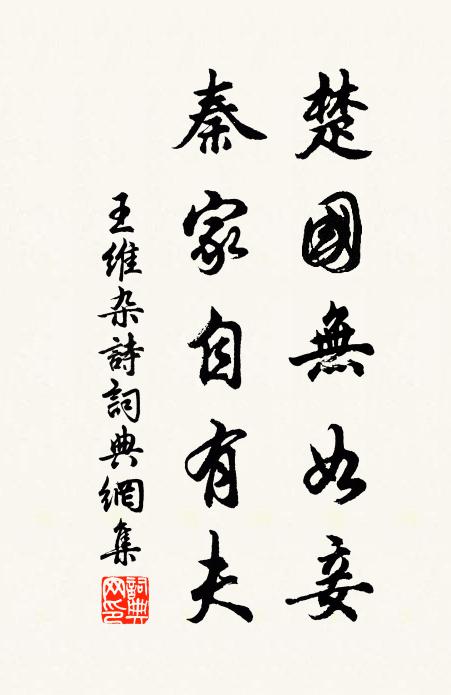 楚國無如妾
秦家自有夫
王維杂詩詞典網集
詞典网印